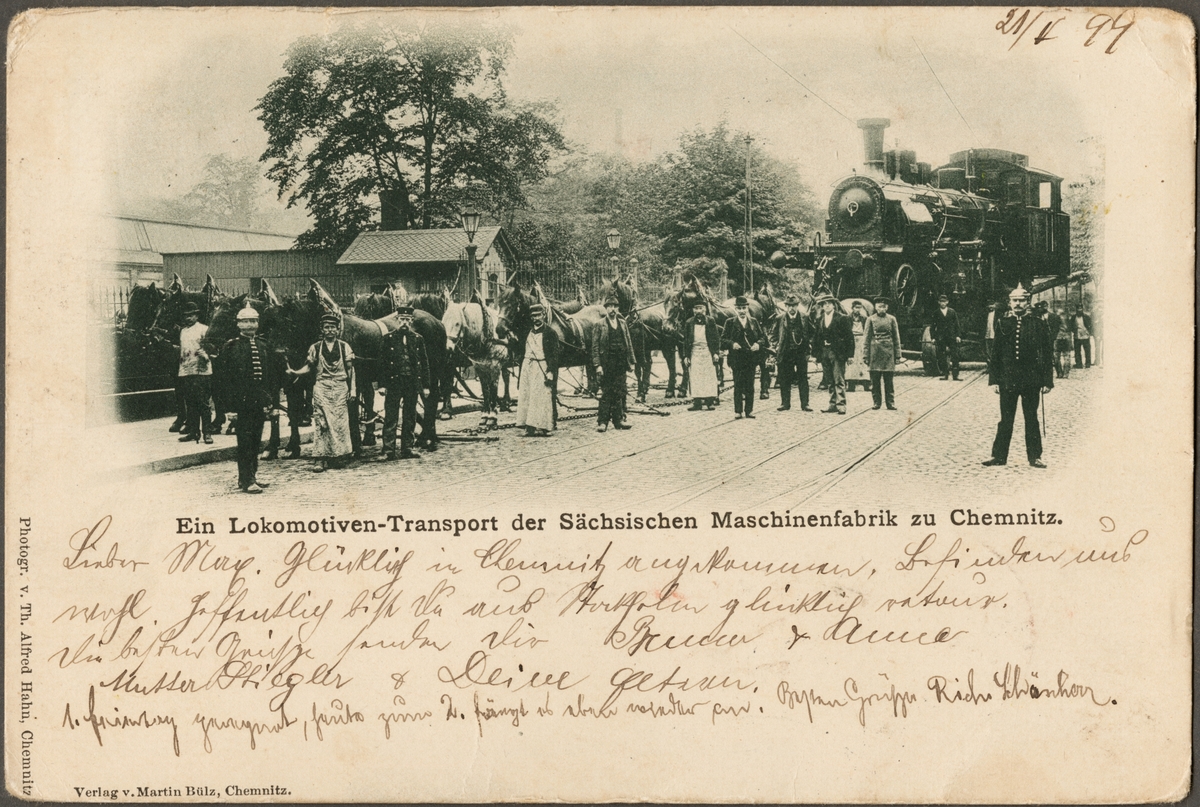 21/V 99
Ein Lokomotiven-Transport der Sächsischen Maschinenfabrik zu Chemnitz.
Lieber Max. Glücklich in Chemnitz angekommen, befinden uns
wohl. Hoffentlich bist Du aus Stockholm glücklich retour.
Die besten Grüße senden Dir & Anna
Mutter Stiegler & Deine
1. Feiertag geregnet, heute zum 2. fängt es eben wieder an. Besten Grüße Schönherr.
Photogr. v. Th. Alfred Hahn, Chemnitz
Verlag v. Martin Bülz, Chemnitz.